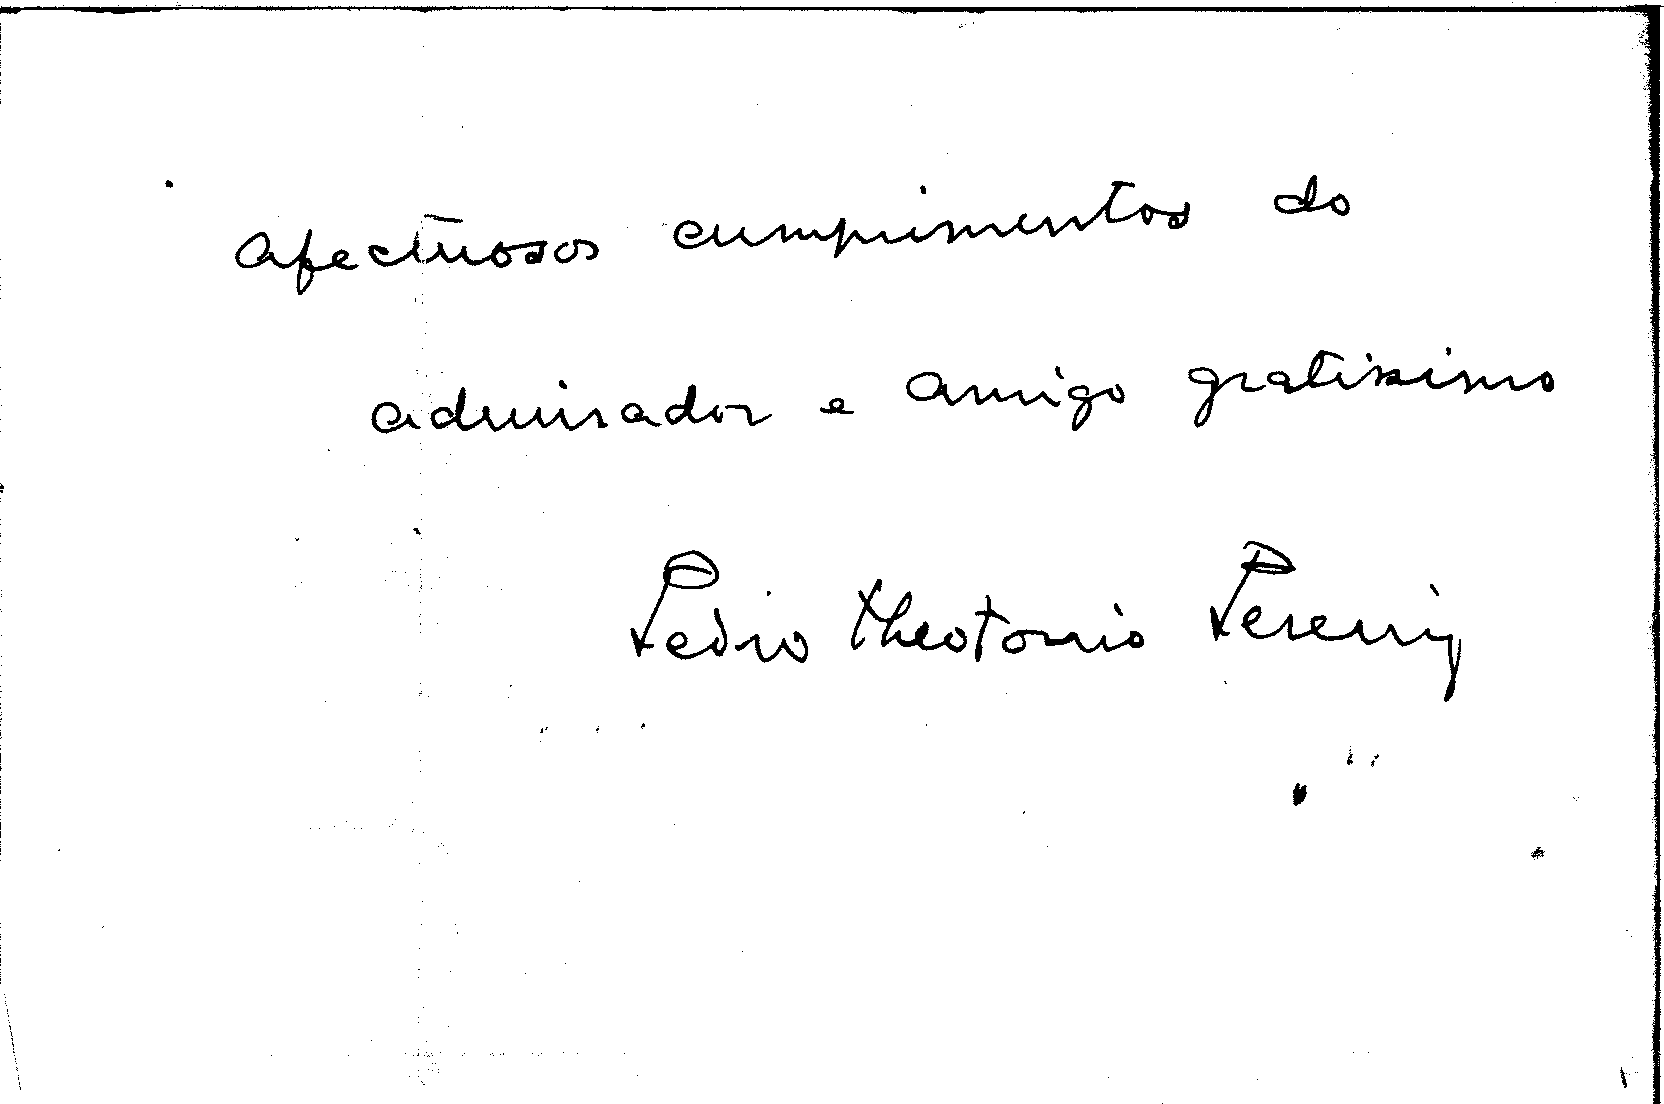 Afectuosos cumprimentos do
admirador e amigo gratissimo
Pedro Theotonio Pereira